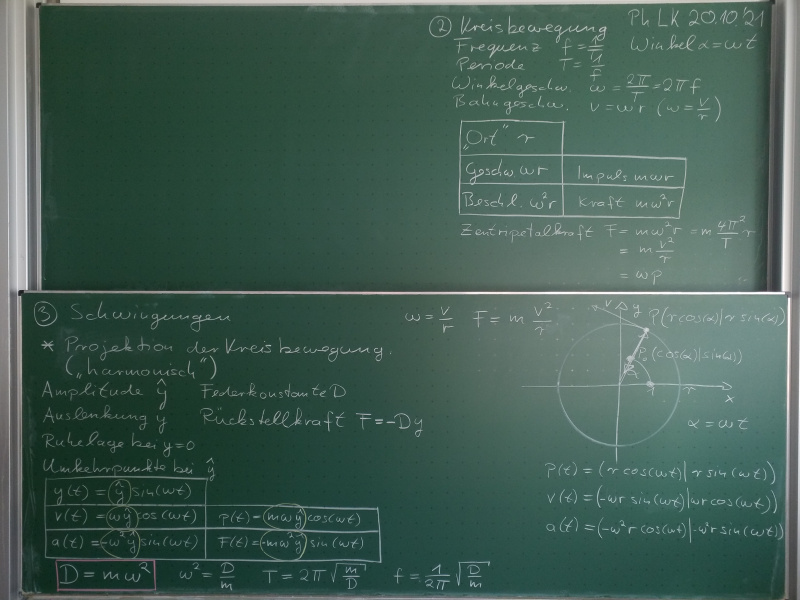 Ph LK 20.10.'21
② Kreisbewegung
Frequenz f = 1/T Winkel α = ωt
Periode T = 1/f
Winkelgeschw. ω = 2π/T = 2πf
Bahngeschw. v = ωr (ω = v/r)
„Ort" r
Geschw ωr Impuls mωr
Beschl. ω²r Kraft mω²r
Zentripetalkraft F = mω²r = m 4π²/T r
= m v²/r
= ωp
③ Schwingungen ω = v/r F = m v²/r
* Projektion der Kreisbewegung.
(„harmonisch")
Amplitude ŷ Federkonstante D
Auslenkung y Rückstellkraft F = -Dy
Ruhelage bei y=0
Umkehrpunkte bei ŷ
y(t) = ŷ sin(ωt)
v(t) = ωŷ cos(ωt) p(t) = mωŷ cos(ωt)
a(t) = -ω²ŷ sin(ωt) F(t) = -mω²ŷ sin(ωt)
D = mω² ω² = D/m T = 2π √(m/D) f = 1/2π √(D/m)
v y P(r cos(α)|r sin(α))
P₀(cos(α)|sin(α))
α
1 r x
α = ωt
P(t) = (r cos(ωt)|r sin(ωt))
v(t) = (-ωr sin(ωt)|ωr cos(ωt))
a(t) = (-ω²r cos(ωt)|-ω²r sin(ωt))